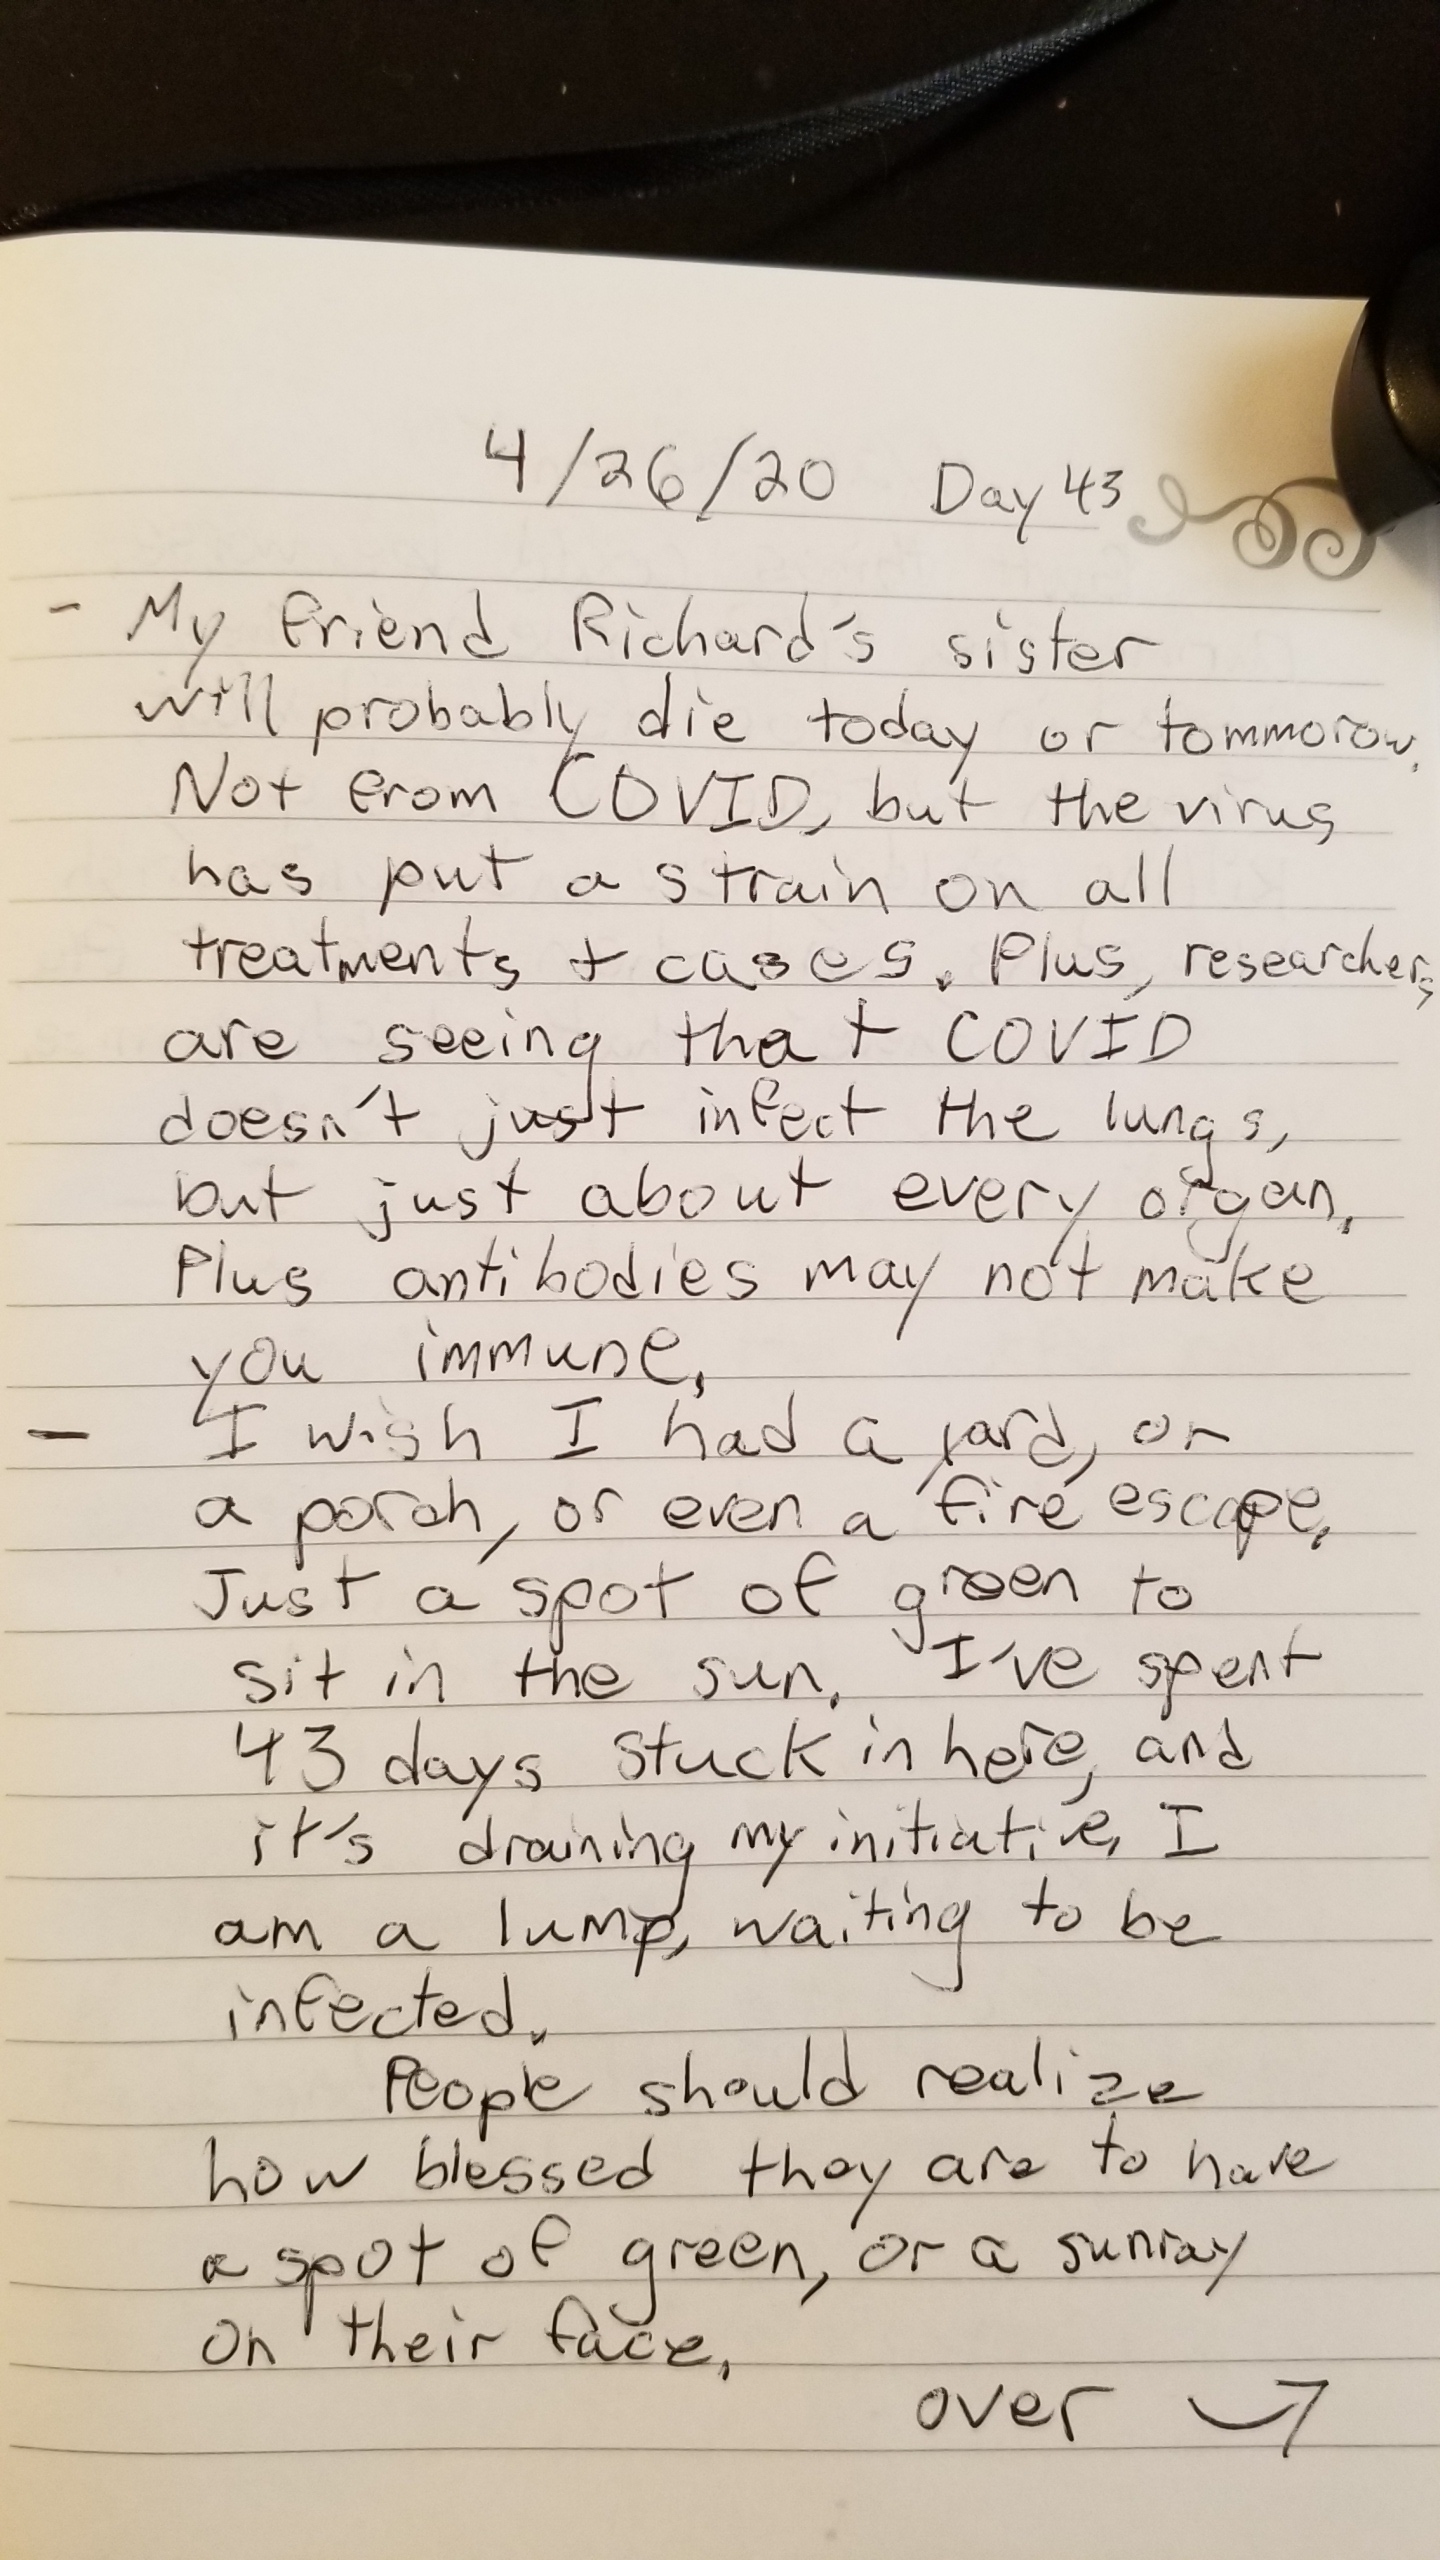 4/26/20 Day 43
- My friend Richard's sister
will probably die today or tommorow.
Not from COVID, but the virus
has put a strain on all
treatments + cases. Plus, researchers
are seeing that COVID
doesn't just infect the lungs,
but just about every organ.
Plus antibodies may not make
you immune.
- I wish I had a yard, or
a porch, or even a fire escape.
Just a spot of green to
sit in the sun. I've spent
43 days stuck in here, and
it's draining my initiative. I
am a lump, waiting to be
infected.
People should realize
how blessed they are to have
a spot of green, or a sunray
on their face.
over →